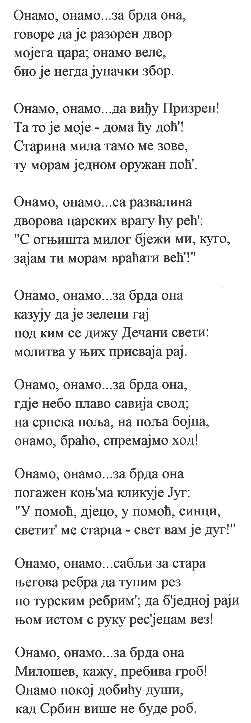 Онамо, онамо...за брда она,
говоре да је разорен двор
мојега цара; онамо веле,
био је негда јуначки збор.
Онамо, онамо...да виђу Призрен!
Та то је моје - дома ћу доћ'!
Старина мила тамо ме зове,
ту морам једном оружан поћ'.
Онамо, онамо...са развалина
дворова царских врагу ћу рећ':
"С огњишта милог бјежи ми, куго,
зајам ти морам враћати већ'!"
Онамо, онамо...за брда она
казују да је зелени гај
под ким се дижу Дечани свети:
молитва у њих присваја рај.
Онамо, онамо...за брда она,
гдје небо плаво савија свод;
на српска поља, на поља бојна,
онамо, браћо, спремајмо ход!
Онамо, онамо...за брда она
погажен коњ'ма кликује Југ:
"У помоћ, дјецо, у помоћ, синци,
светит' ме старца - свет вам је дуг!"
Онамо, онамо...сабљи за стара
његова ребра да тупим рез
по турским ребрим'; да б'једној раји
њом истом с руку рес'јецам вез!
Онамо, онамо...за брда она
Милошев, кажу, пребива гроб!
Онамо покој добићу души,
кад Србин више не буде роб.